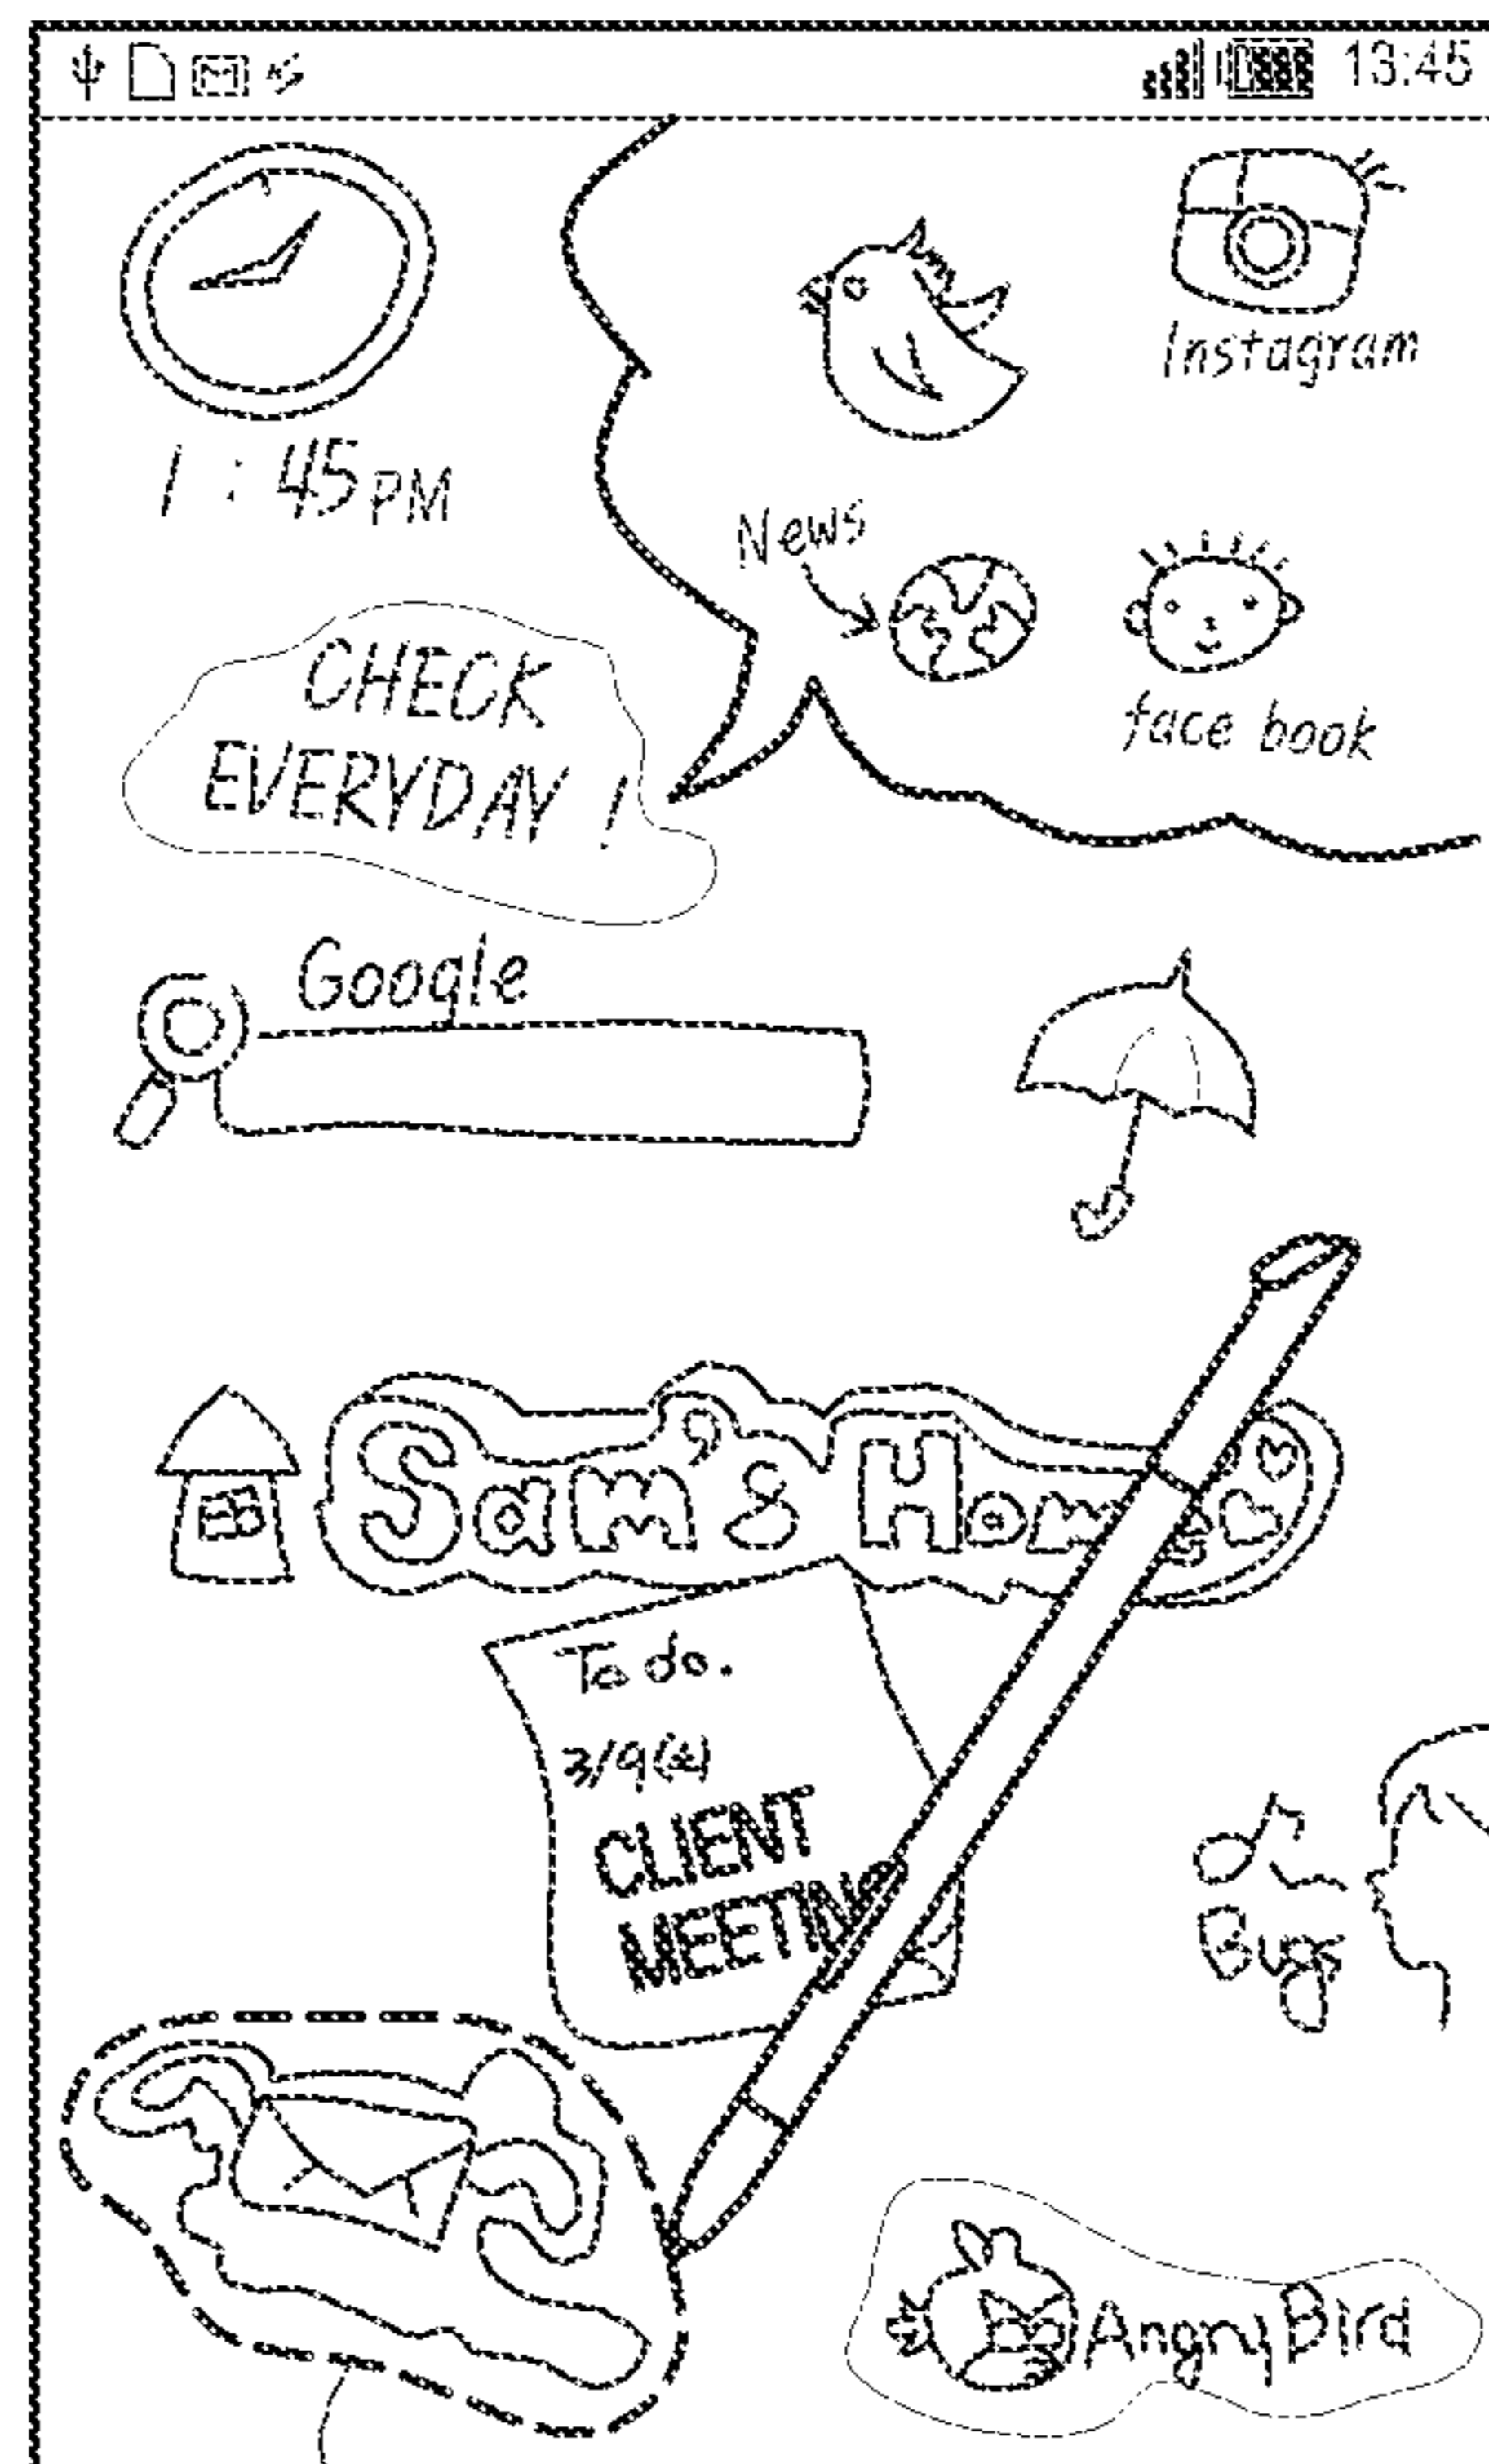 13:45
Instagram
1 : 45 PM
News
CHECK
EVERYDAY !
face book
Google
Sam's Home
To do.
3/9
CLIENT
MEETING
Bugs
Angry Bird